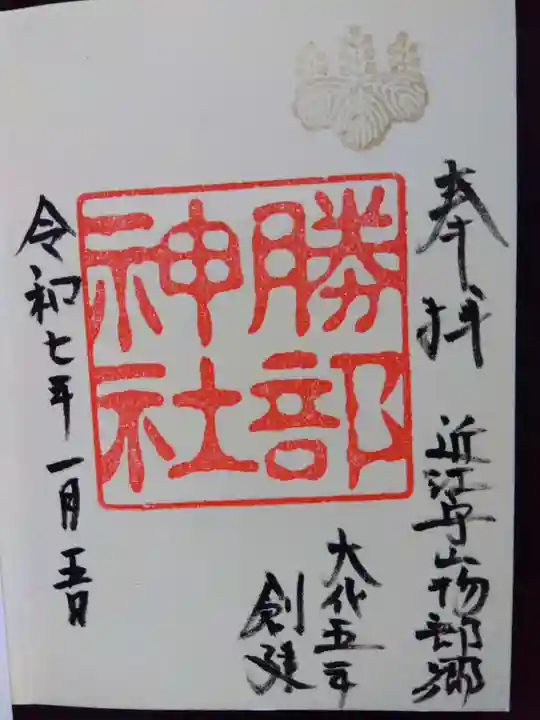 奉拝
近江守山物部郷
勝部
神社
大化五年
創建
令和七年一月五日